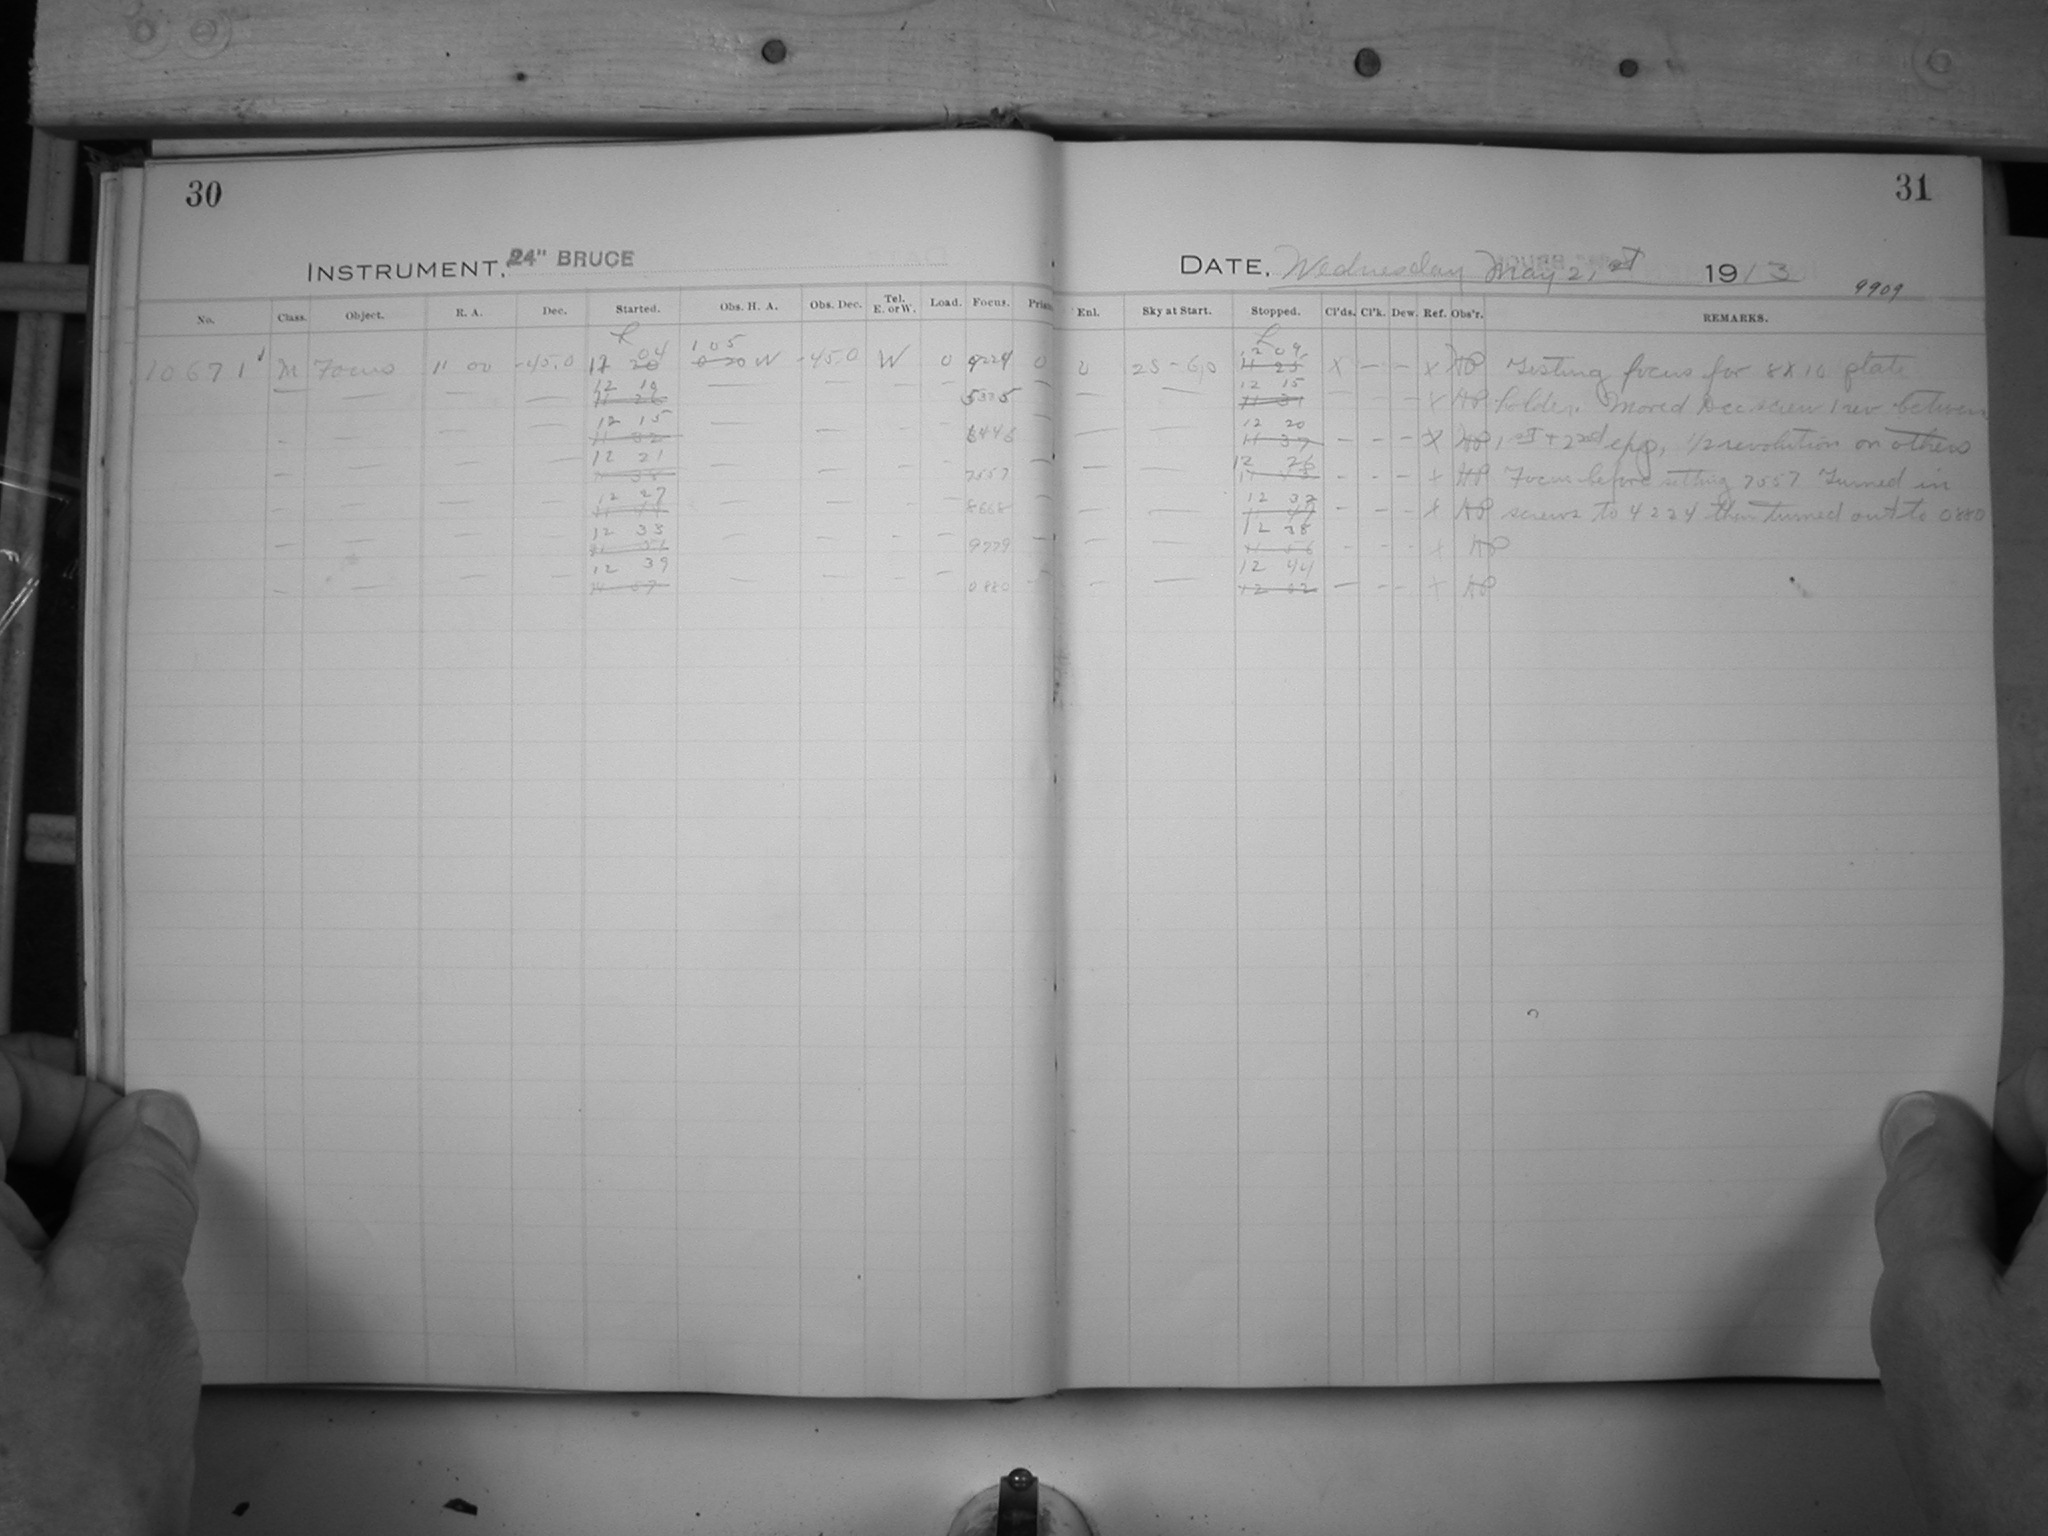 30
31
INSTRUMENT, 24" BRUCE
DATE, Wednesday May 21st 1913
9909
No. Class. Object. R. A. Dec. Started. Obs. H. A. Obs. Dec. Tel. E. or W. Load. Focus. Enl. Sky at Start. Stopped. Cl'ds. Cl'k. Dew. Ref. Obs'r. REMARKS.
10671 M Focus 11 00 -45.0 12 04 1 05 W -45.0 W 0 4224 0 0 2S-6,0 12 09 X — — X AP Testing focus for 8X10 plate
— — — — 12 10 — — — — 5335 — — 12 15 — — — X AP holder. Moved Dec screw 1 rev between
— — — — 12 15 — — — — 6446 — — — 12 20 — — — X AP 1st + 2nd exp, 1/2 revolution on others
— — — — 12 21 — — — — 7557 — — — 12 26 — — — X AP Focus before setting 7557 Turned in
— — — — 12 27 — — — — 8668 — — — 12 32 — — — X AP screws to 4224 then turned out to 0880
— — — — 12 33 — — — — 9779 — — — 12 38 — — — X AP
— — — — 12 39 — — — — 0880 — — — 12 44 — — — X AP